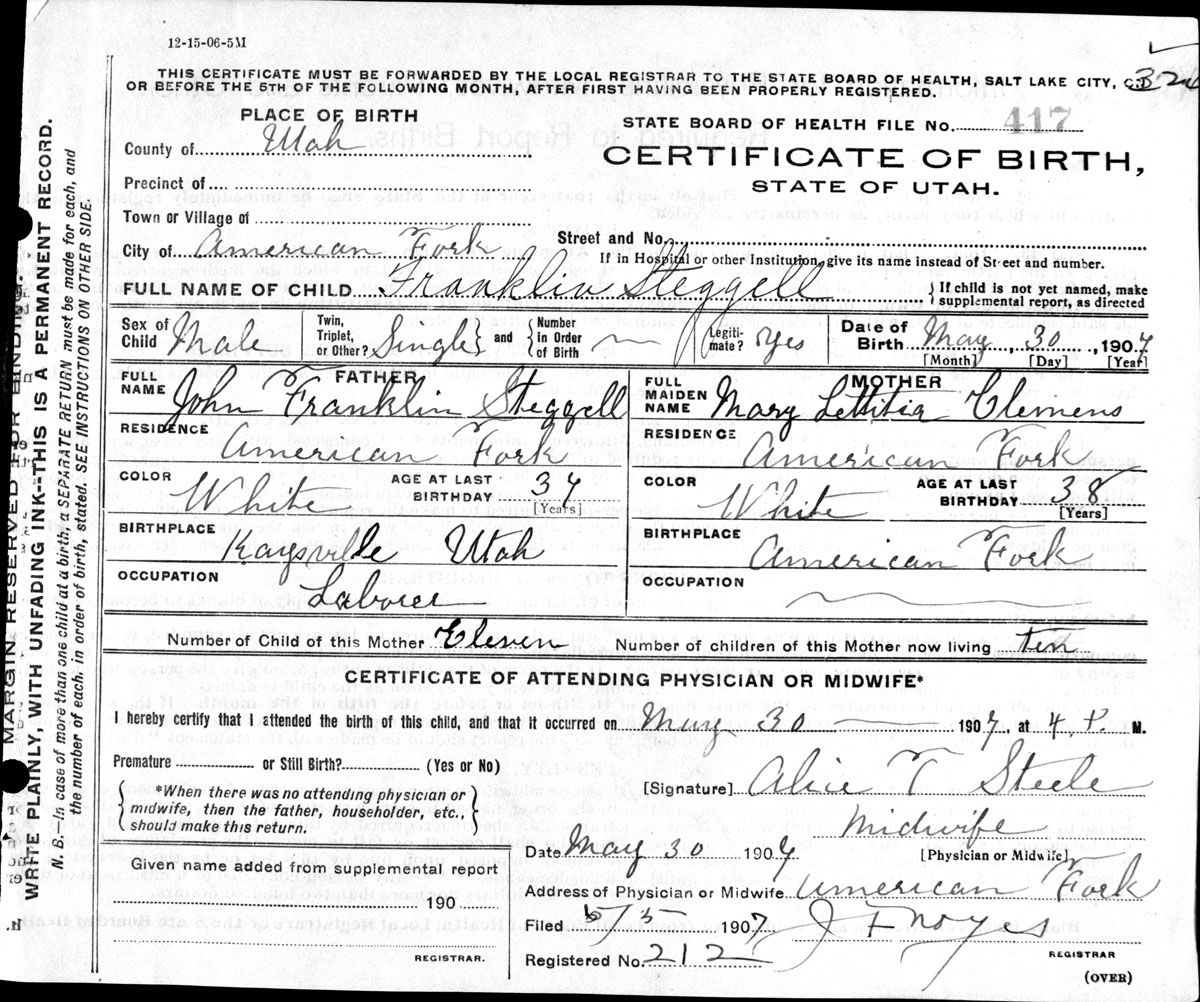 12-15-06-5M
THIS CERTIFICATE MUST BE FORWARDED BY THE LOCAL REGISTRAR TO THE STATE BOARD OF HEALTH, SALT LAKE CITY,
OR BEFORE THE 5TH OF THE FOLLOWING MONTH, AFTER FIRST HAVING BEEN PROPERLY REGISTERED.
PLACE OF BIRTH
County of Utah
Precinct of
Town or Village of
City of American Fork
STATE BOARD OF HEALTH FILE No. 417
CERTIFICATE OF BIRTH,
STATE OF UTAH.
Street and No.
If in Hospital or other Institution, give its name instead of Street and number.
FULL NAME OF CHILD Franklin Steggell
{ If child is not yet named, make
supplemental report, as directed
Sex of Child Male
Twin, Triplet, or Other? Single } and { Number In Order of Birth
Legiti-mate? Yes
Date of Birth May 30, 1907
[Month] [Day] [Year]
FATHER
FULL NAME John Franklin Steggell
RESIDENCE American Fork
COLOR White AGE AT LAST BIRTHDAY 39 [Years]
BIRTHPLACE Kaysville Utah
OCCUPATION Laborer
MOTHER
FULL MAIDEN NAME Mary Lettitia Clemens
RESIDENCE American Fork
COLOR White AGE AT LAST BIRTHDAY 38 [Years]
BIRTHPLACE American Fork
OCCUPATION
Number of Child of this Mother Eleven Number of children of this Mother now living ten
CERTIFICATE OF ATTENDING PHYSICIAN OR MIDWIFE*
I hereby certify that I attended the birth of this child, and that it occurred on May 30 1907, at 4 P. M.
Premature or Still Birth? (Yes or No)
{ *When there was no attending physician or
midwife, then the father, householder, etc.,
should make this return. }
Given name added from supplemental report
190
REGISTRAR.
[Signature] Alice T Steele
Midwife
Date May 30 1907 [Physician or Midwife]
Address of Physician or Midwife American Fork
Filed 1907 Noyes
REGISTRAR
Registered No. 212
(OVER)
MARGIN RESERVED FOR BINDING.
WRITE PLAINLY, WITH UNFADING INK--THIS IS A PERMANENT RECORD.
N. B.—In case of more than one child at a birth, a SEPARATE RETURN must be made for each, and
the number of each, in order of birth, stated. SEE INSTRUCTIONS ON OTHER SIDE.